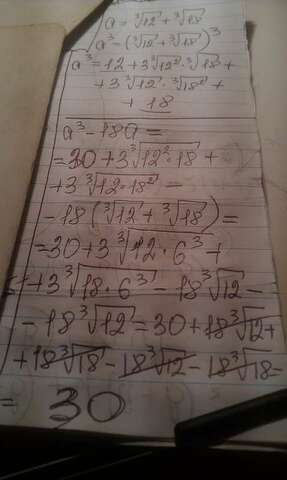 a = ∛12 + ∛18
a³ = (∛12 + ∛18)³
a³ = 12 + 3∛12² · ∛18 +
+ 3∛12 · ∛18² +
+ 18
a³ - 18a =
= 30 + 3∛12² · 18 +
+ 3∛12 · 18² -
- 18(∛12 + ∛18) =
= 30 + 3∛12 · 6³ +
+ 3∛18 · 6³ - 18∛12 -
- 18∛12 = 30 + 18∛12 +
+ 18∛18 - 18∛12 - 18∛18 =
= 30